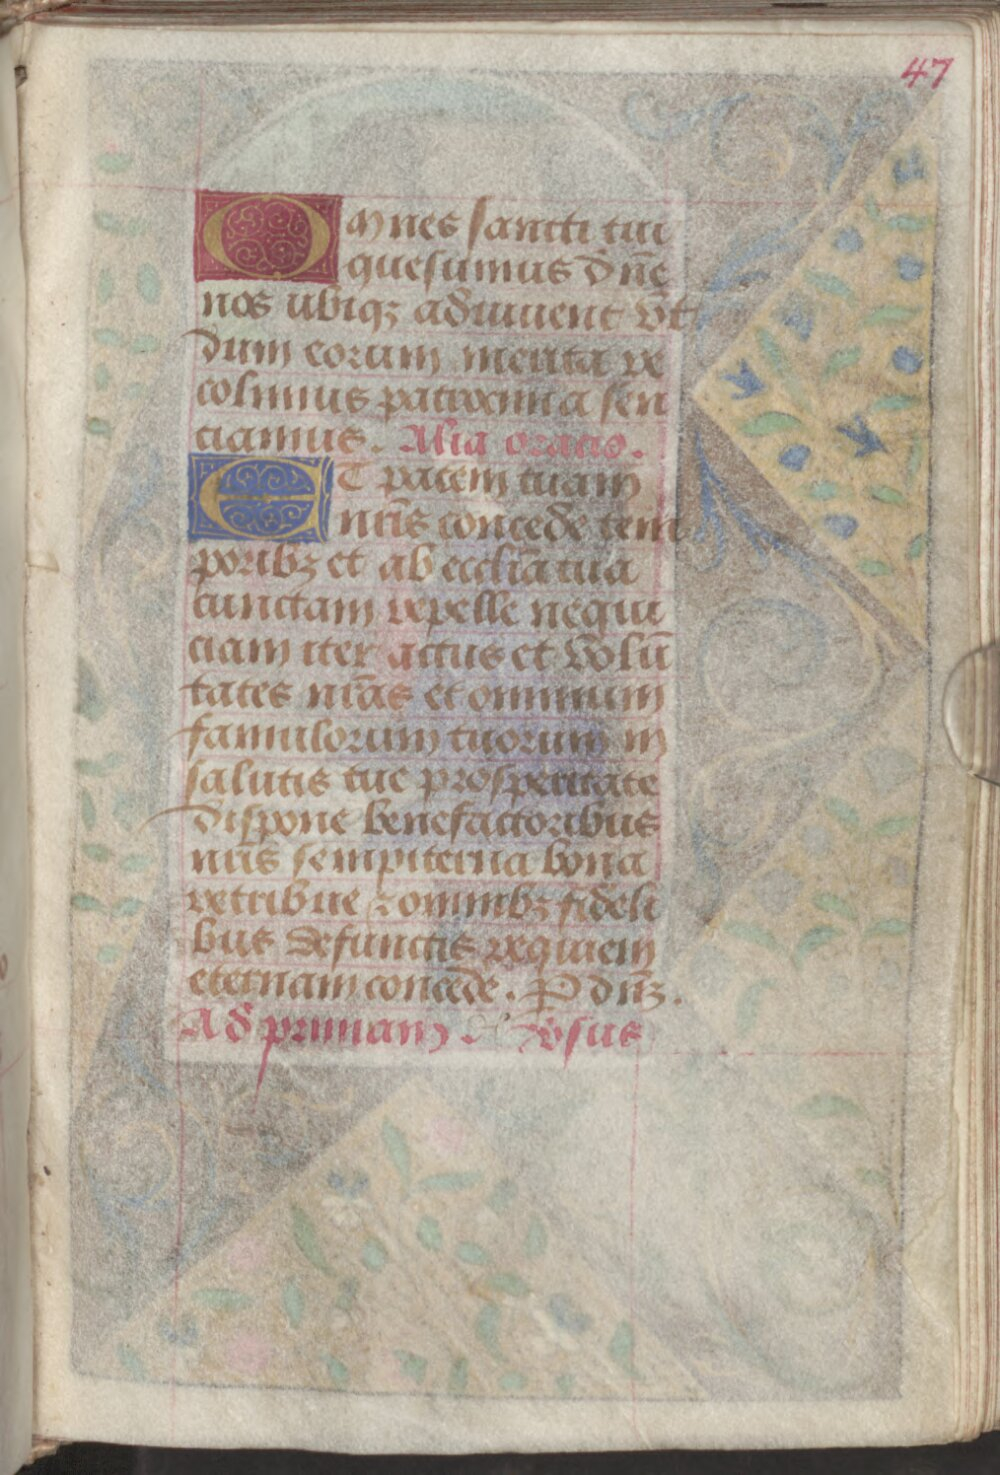 47
Omnes sancti tui
quesumus dn̄e
nos ubiqꝫ adiuuent vt
dum eorum merita re
colimus patrocinia sen
ciamus. Alia oracio.
ET pacem tuam
nr̄is concede tem
poribꝫ et ab ecclīa tua
cunctam repelle nequi
ciam iter actus et volū
tates nr̄as et omnium
famulorum tuorum in
salutis tue prosperitate
dispone benefactoribus
nr̄is sempiterna bona
retribue ⁊ omnibꝫ fideli
bus defunctis requiem
eternam concede. P dn̄ꝫ.
Ad primam. v̄sus